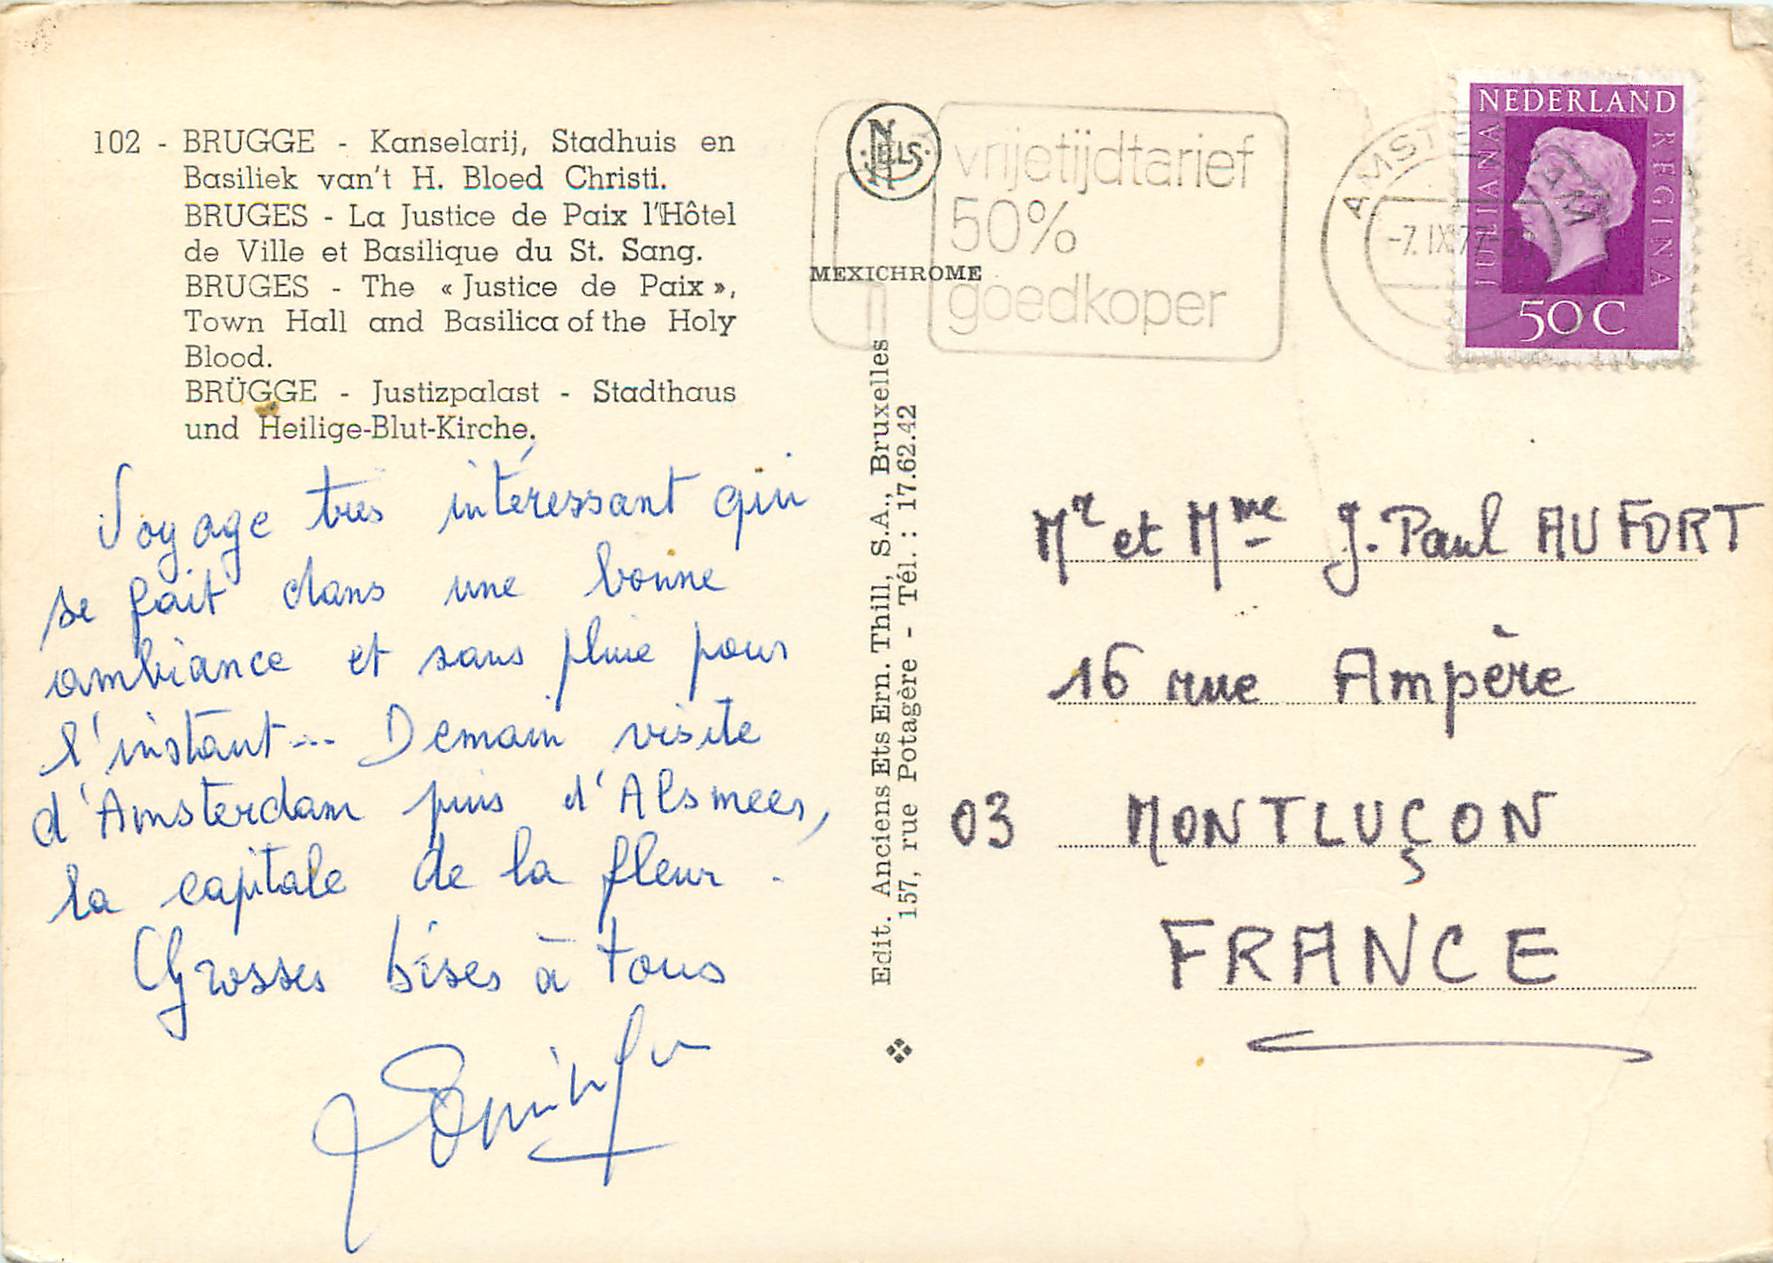 102 - BRUGGE - Kanselarij, Stadhuis en
Basiliek van't H. Bloed Christi.
BRUGES - La Justice de Paix l'Hôtel
de Ville et Basilique du St. Sang.
BRUGES - The « Justice de Paix »,
Town Hall and Basilica of the Holy
Blood.
BRÜGGE - Justizpalast - Stadthaus
und Heilige-Blut-Kirche.
Voyage très intéressant qui
se fait dans une bonne
ambiance et sans pluie pour
l'instant... Demain visite
d'Amsterdam puis d'Alsmeer,
la capitale de la fleur.
Grosses bises à tous
NELS
MEXICHROME
Edit. Anciens Ets Ern. Thill, S.A., Bruxelles
157, rue Potagère - Tél. : 17.62.42
vrijetijdtarief
50%
goedkoper
AMSTERDAM
-7.IX.7
NEDERLAND
JULIANA
REGINA
50 C
Mr et Mme J. Paul AUFORT
16 rue Ampère
03 MONTLUÇON
FRANCE